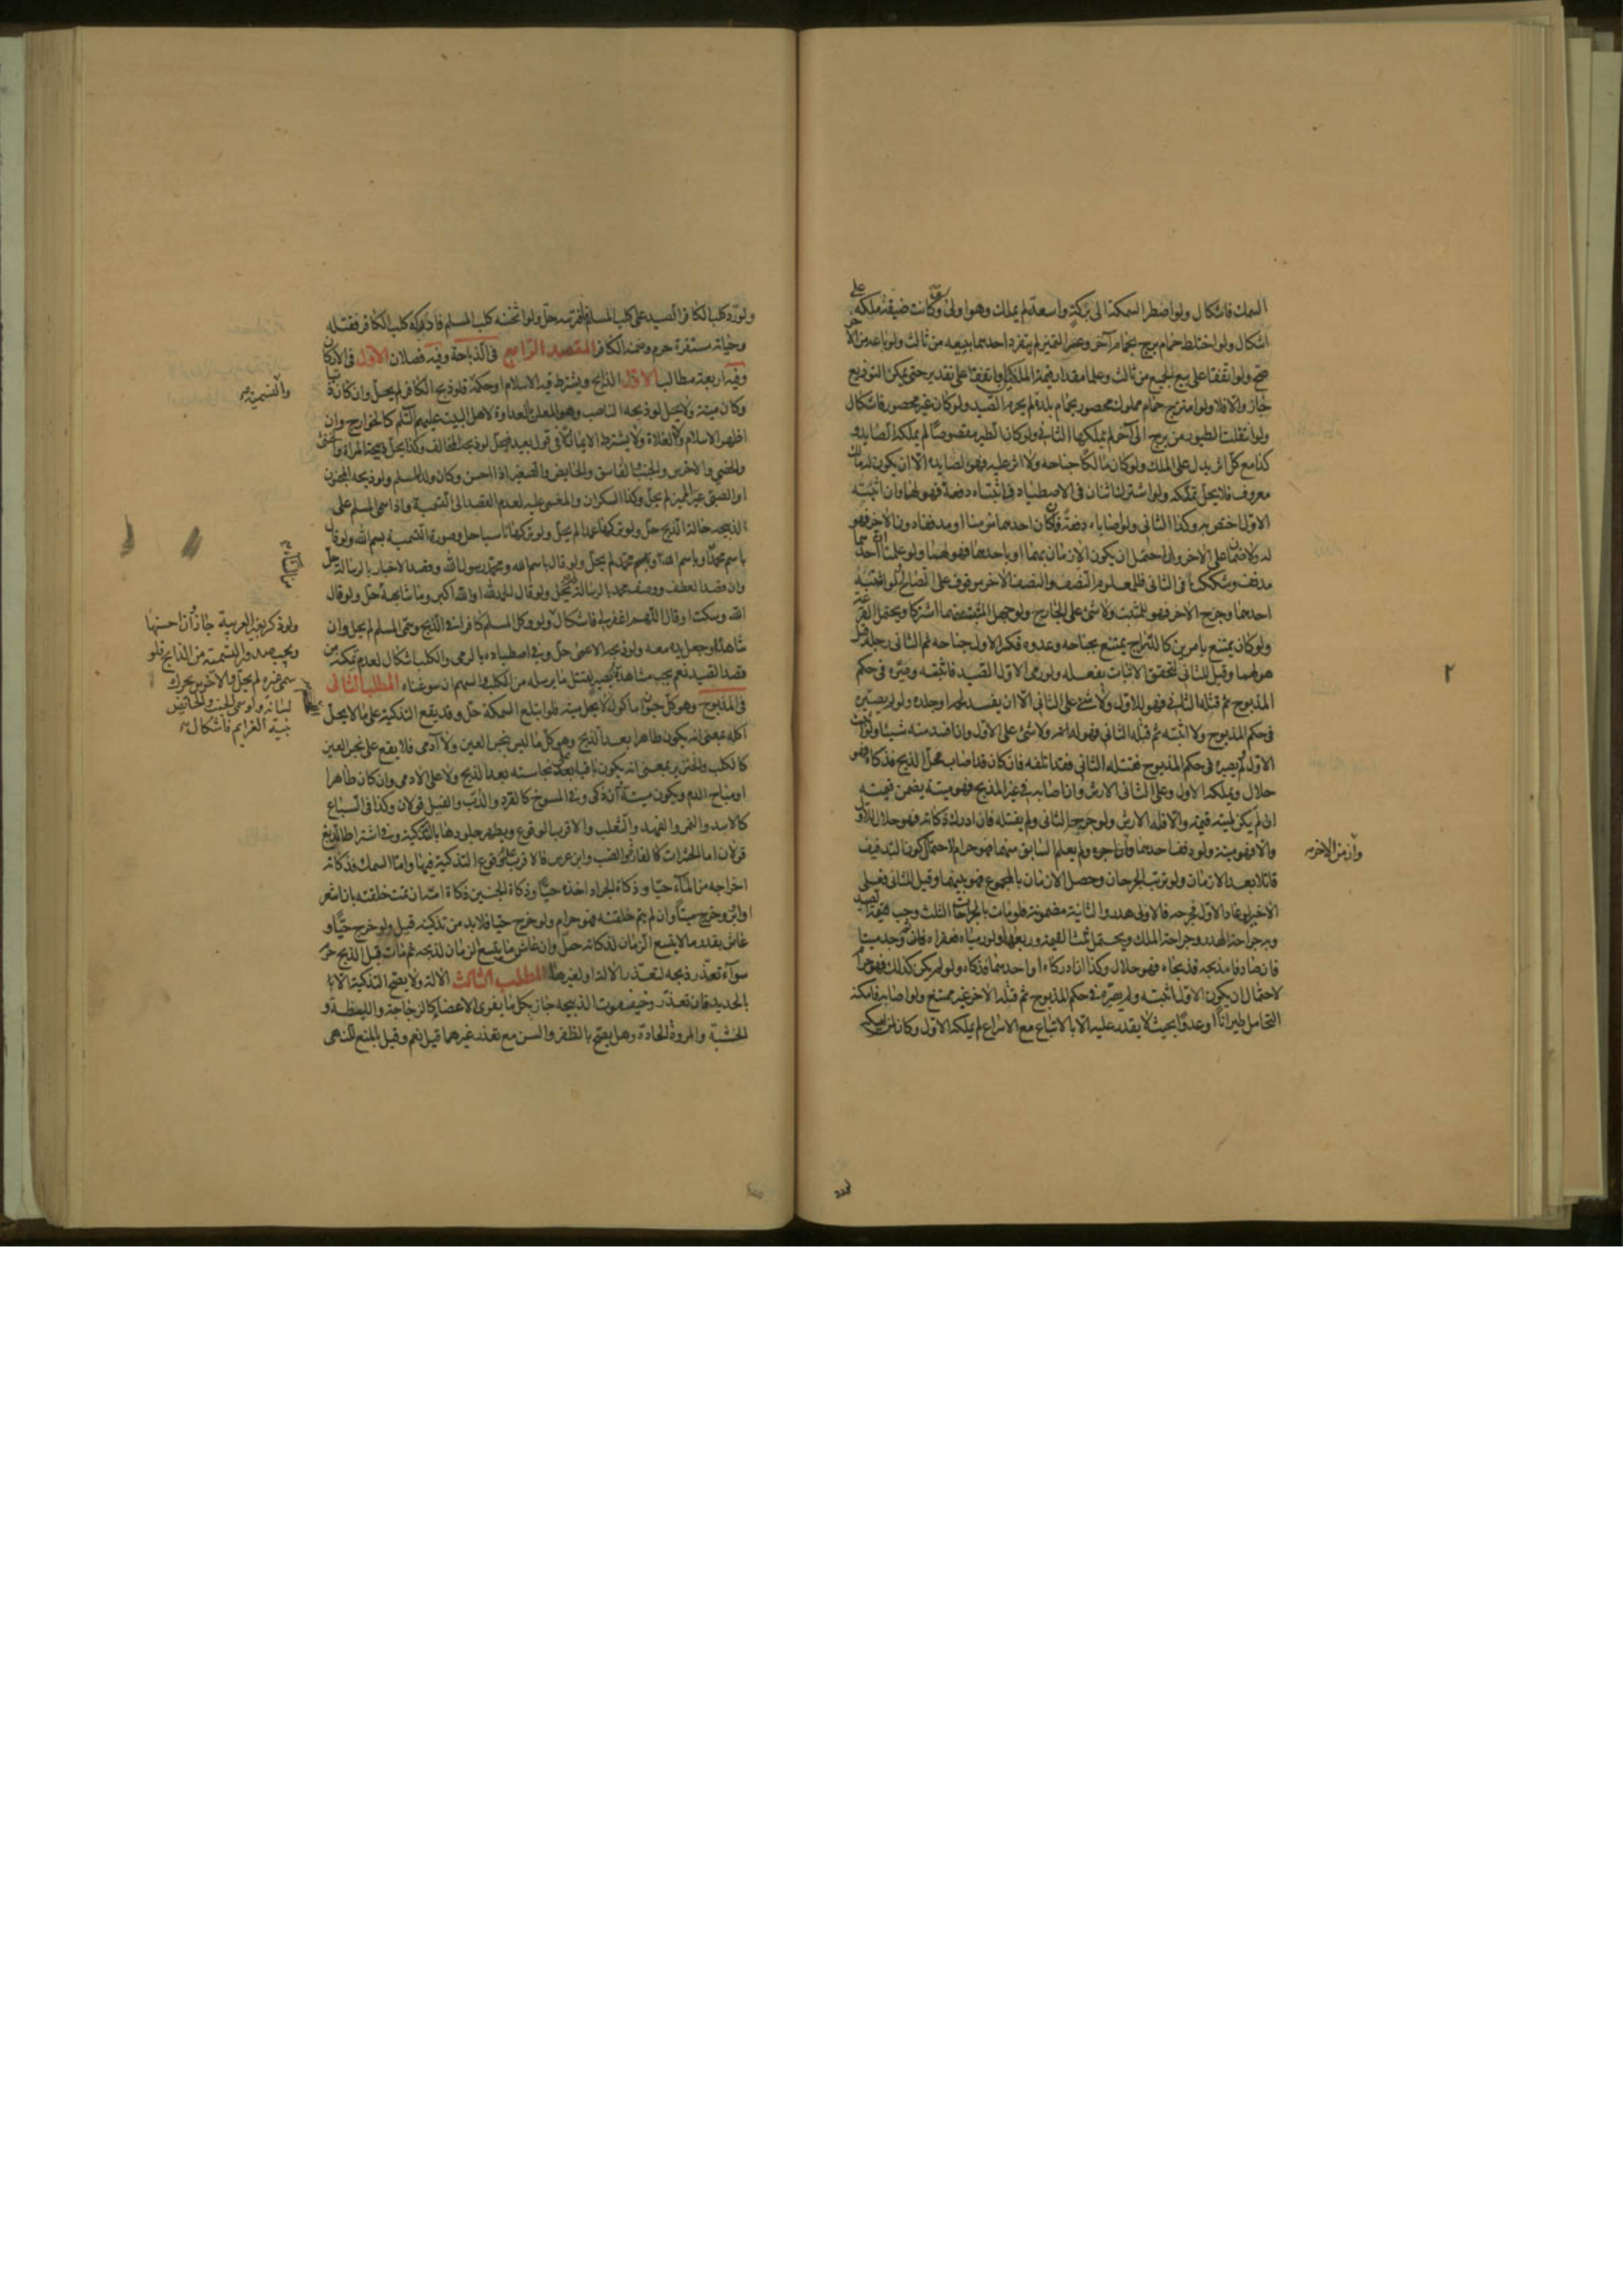 السمك فاشكال ولو اضطر السمكة الى بركة واسعة لم يملك وهو اولى ولو كانت ضيقة ملكه على
اشكال ولو اختلط حمام برج بحمام آخر وعسر التميز لم يتفرد احدهما ببيعه من ثالث ولو باعه من الآخر
صح ولو اتفقا على بيع الجميع من ثالث وعلما مقدار قيمة الملكين او اتفقا على تقدير حتى يمكن التوزيع
جاز والا فلا ولو امتزج حمام مملوك محصور بحمام بلدة لم يحرم الصيد ولو كان غير محصور فاشكال
ولو انتقلت الطيور من برج الى آخر لم يملكها الثاني ولو كان الطير مقصوصا لم يملكه الصايد و
كذا مع كل اثر يدل على الملك ولو كان مالكا جناحه ولا اثر عليه فهو لصايده الا ان يكون له مالك
معروف فلا يحل تملكه ولو اشترك اثنان في الاصطياد فاثبتاه دفعة فهو لهما وان اثبته
الاول اختص به وكذا الثاني ولو اصاباه دفعة فكان احدهما مزمنا او مدففا دون الآخر فهو
له ولا ضمان على الآخر ولو احتمل ان يكون الازمان بهما او باحدهما فهو لهما ولو علمنا ان احدهما
مدفف وشككنا في الثاني فللمعلوم النصف والنصف الآخر موقوف على التصالح ولو اثبته
احدهما وجرح الآخر فهو للمثبت ولا شئ على الجارح ولو جهل المثبت منهما اشتركا ويحتمل القرعة
ولو كان يمتنع بامرين كالدراج يمتنع بجناحه وعدوه فكسر الاول جناحه ثم الثاني رجله قيل
هو لهما وقيل للثاني لتحقق الاثبات بفعله ولو رمى الاول الصيد فاثبته وصيره في حكم
المذبوح ثم قتله الثاني فهو للاول ولا شئ على الثاني الا ان يفسد لحمه او جلده ولو لم يصيره
في حكم المذبوح ولا اثبته ثم قتله الثاني فهو له ولا شئ على الاول وان افسد منه شيئا ولو اثبته
الاول ولم يصيره في حكم المذبوح فقتله الثاني فقد اتلفه فان كان قد اصاب محل الذبح فذكاه فهو
حلال ويملكه الاول وعلى الثاني الارش وان اصابه في غير المذبح فهو ميتة يضمن قيمته
ان لم يكن لميته قيمة والا فله الارش ولو جرحه الثاني ولم يقتله فان ادرك ذكاته فهو حلال للاول
والا فهو ميتة ولو دفف احدهما وازمن الآخر ولم يعلم السابق منهما فهو حرام لاحتمال كون التدفيف
قاتلا بعد الازمان ولو ترتب الجرحان وحصل الازمان بالمجموع فهو بينهما وقيل للثاني فعلى
الاخير لو عاد الاول فجرحه فالاولى هدر والثانية مضمونة فلو مات بالجراحات الثلث وجب قيمة الصيد
وبه جراحة الهدر وجراحة الملك ويحتمل ثلث القيمة وربعها ولو رمياه فعقراه فان وجد ميتا
فان صادفا مذبحه فذبحاه فهو حلال وكذا ان ادركاه او احدهما فذكاه ولو لم يكن كذلك فهو حرام
لاحتمال ان يكون الاول اثبته ولم يصيره في حكم المذبوح ثم قتله الآخر غير ممتنع ولو اصابه فامكنه
التحامل طيرانا او عدوا بحيث لا يقدر عليه الا بالاتباع مع الاسراع لم يملكه الاول وكان لمن امسكه
وازمن الآخر
٢
ولو رد كلب الكافر الصيد على كلب المسلم فافترسه حل ولو اثخنه كلب المسلم فادركه كلب الكافر فقتله
وحياته مستقرة حرم وضمنه الكافر المقصد الرابع في الذباحة وفيه فصلان الاول في الاركان
وفيه اربعة مطالب الاول الذابح ويشترط فيه الاسلام او حكمه فلو ذبح الكافر لم يحل وان كان ذميا
وكان ميتة ولا يحل لو ذبحه الناصب وهو المعلن بالعداوة لاهل البيت عليهم السلام كالخوارج وان
اظهر الاسلام ولا الغلاة ولا يشترط الايمان في قول بعيد فيحل لو ذبحه المخالف وكذا يحل ذبيحة المراة والخنثى
والخصي والاخرس والجنب والفاسق والحايض والصغير اذا احسن وكان ولد المسلم ولو ذبحه المجنون
او الصبي غير المميز لم يحل وكذا السكران والمغمى عليه لعدم القصد الى التسمية واذا سمى المسلم على
الذبيحة حالة الذبح حل ولو تركها عمدا لم يحل ولو تركها ناسيا حل وصورة التسمية بسم الله ولو قال
باسم محمد او باسم الله وباسم محمد لم يحل ولو قال باسم الله ومحمد رسول الله وقصد الاخبار بالرسالة حل
وان قصد العطف ووصف محمد بالرسالة لم يحل ولو قال الحمد لله او الله اكبر وما شابهه حل ولو قال
الله وسكت او قال اللهم اغفر لي فاشكال ولو وكل المسلم كافرا في الذبح وسمى المسلم لم يحل وان
شاهده او جعل يده معه ولو ذبحه الاعمى حل وفي اصطياده بالرمى والكلب اشكال لعدم تمكنه من
قصد الصيد نعم يجب مشاهدة بصير لقتل ما يرسله من الكلب والسهم ان سوغناه المطلب الثاني
في المذبوح وهو كل حيوان ماكول لا يحل ميته فلو ابتلع السمكة حل وقد يقع التذكية على ما لا يحل
اكله بمعنى انه يكون طاهرا بعد الذبح وهو كل ما ليس بنجس العين ولا آدمي فلا يقع على نجس العين
كالكلب والخنزير بمعنى انه يكون باقيا على نجاسته بعد الذبح ولا على الآدمي وان كان طاهرا
او مباح الدم ويكون ميتة ان ذكى وفي المسوخ كالقرد والدب والفيل قولان وكذا في السباع
كالاسد والنمر والفهد والثعلب والاقرب الوقوع ويطهر جلودها بالتذكية وفي اشتراط الدبغ
قولان اما الحشرات كالفار والضب وابن عرس فالاقرب عدم وقوع التذكية فيها واما السمك فذكاته
اخراجه من الماء حيا وذكاة الجراد اخذه حيا وذكاة الجنين ذكاة امه ان تمت خلقته بان اشعر
او اوبر وخرج ميتا وان لم يتم خلقته فهو حرام ولو خرج حيا فلا بد من تذكيته قيل ولو خرج حيا و
عاش بقدر ما لا يتسع الزمان لذكاته حل وان عاش ما يتسع الزمان لذبحه ثم مات قبل الذبح حرم
سواء تعذر ذبحه لتعذر الآلة او لغيرها المطلب الثالث الآلة ولا يصح التذكية الا
بالحديد فان تعذر وخيف فوت الذبيحة جاز بكل ما يفرى الاعضاء كالزجاجة والليطة و
الخشبة والمروة الحادة وهل يصح بالظفر والسن مع تعذر غيرهما قيل نعم وقيل بالمنع للنهى
والتسمية
ولو ذكر بغير العربية جاز ان احسنها
ويجب صدور التسمية من الذابح فلو
سمى غيره لم يحل والاخرس يحرك
لسانه ولو سمى الجنب والحايض
بنية العزايم فاشكال